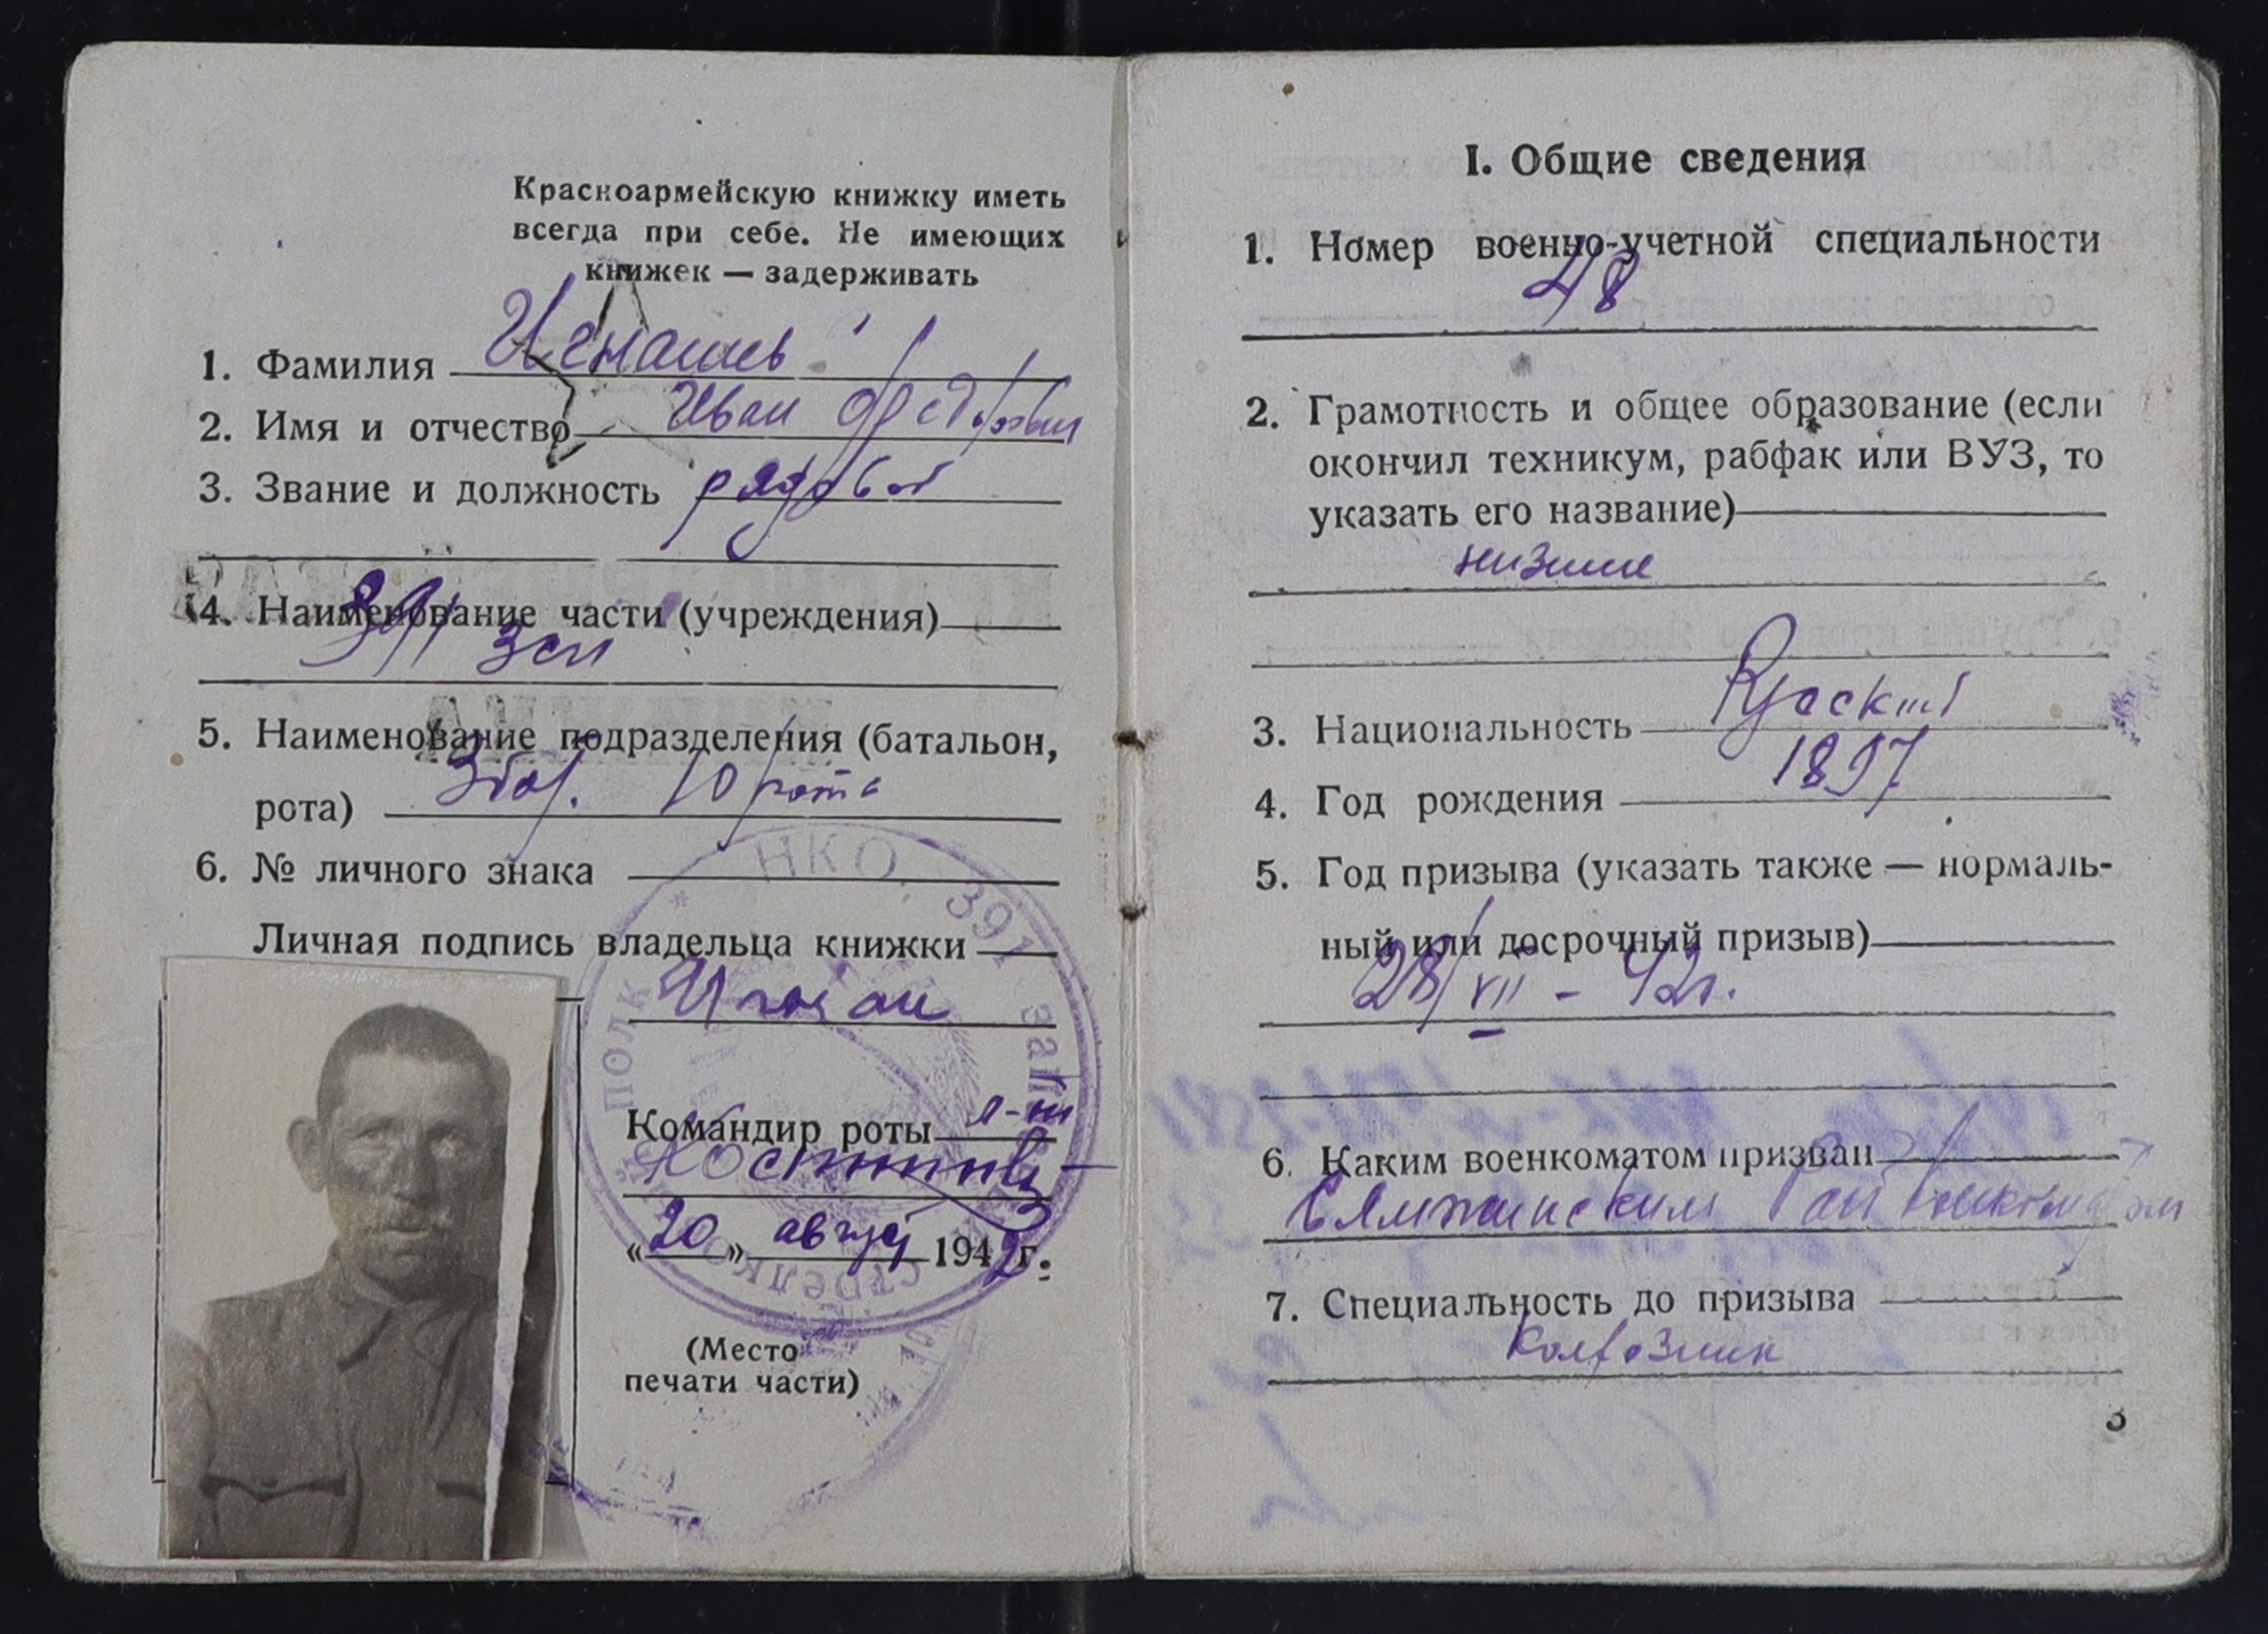 Красноармейскую книжку иметь
всегда при себе. Не имеющих
книжек — задерживать
1. Фамилия
2. Имя и отчество Иван Федорович
3. Звание и должность рядовой
4. Наименование части (учреждения)
391 зсп
5. Наименование подразделения (батальон,
рота) 3 бат. 10 рота
6. № личного знака
Личная подпись владельца книжки
Командир роты л-нт
«20» август 1942 г.
(Место
печати части)
НКО 391 ЗАП СТРЕЛКО ПОЛК
I. Общие сведения
1. Номер военно-учетной специальности
48
2. Грамотность и общее образование (если
окончил техникум, рабфак или ВУЗ, то
указать его название)
низшее
3. Национальность Русский
4. Год рождения 1897
5. Год призыва (указать также — нормаль-
ный или досрочный призыв)
28/VII – 42г.
6. Каким военкоматом призван
Рай военкоматом
7. Специальность до призыва
колхозник
3